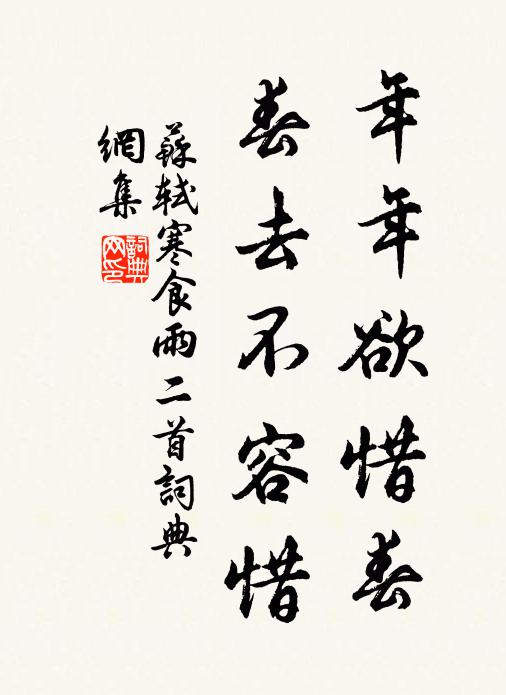 年年欲惜春
春去不容惜
蘇軾寒食雨二首詞典
網集
詞典
网印